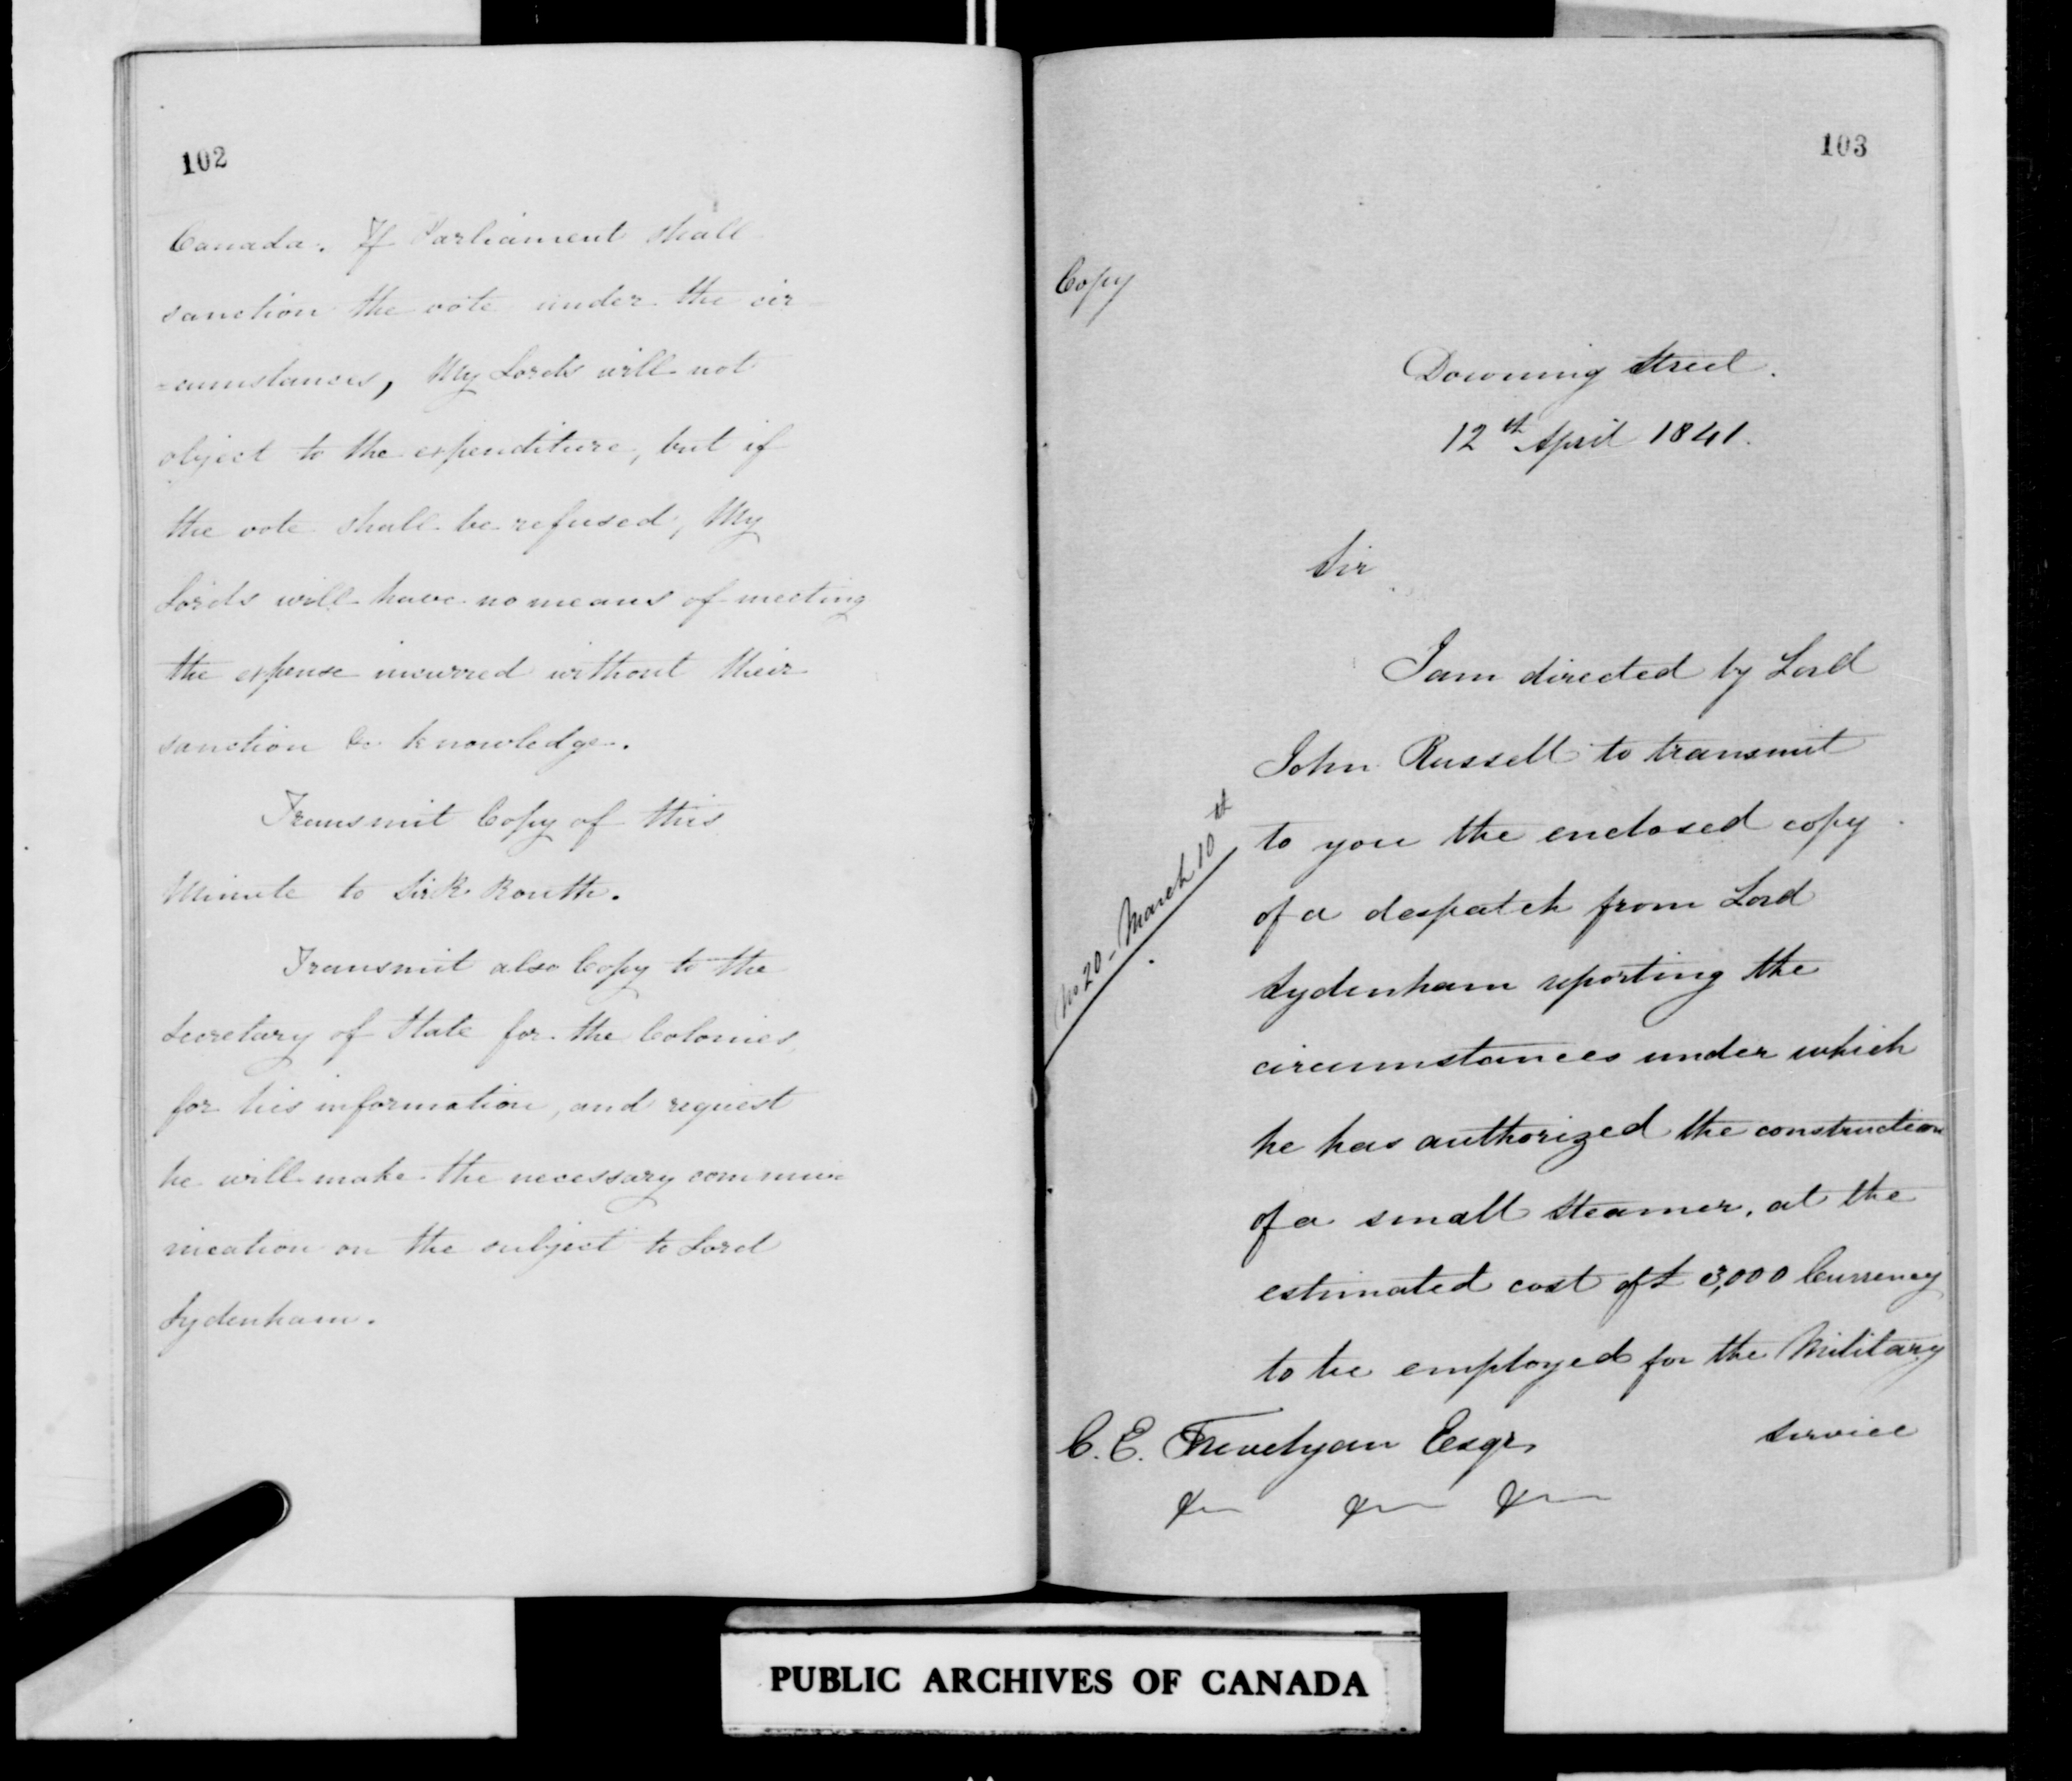 102
Canada. If Parliament shall
sanction the vote under the cir
=cumstances, My Lords will not
object to the expenditure, but if
the vote shall be refused, My
Lords will have no means of meeting
the expense incurred without their
sanction or knowledge.
Transmit Copy of this
Minute to Sir R. Routh.
Transmit also Copy to the
Secretary of State for the Colonies
for his information, and request
he will make the necessary commu=
nication on the subject to Lord
Sydenham.
103
Copy
Downing Street.
12th April 1841.
Sir
I am directed by Lord
John Russell to transmit
to you the enclosed copy
No 20 - March 10th
of a despatch from Lord
Sydenham reporting the
circumstances under which
he has authorized the construction
of a small steamer, at the
estimated cost of £3,000 Currency
to be employed for the Military
service
C. E. Trevelyan Esqr
&c &c &c
PUBLIC ARCHIVES OF CANADA